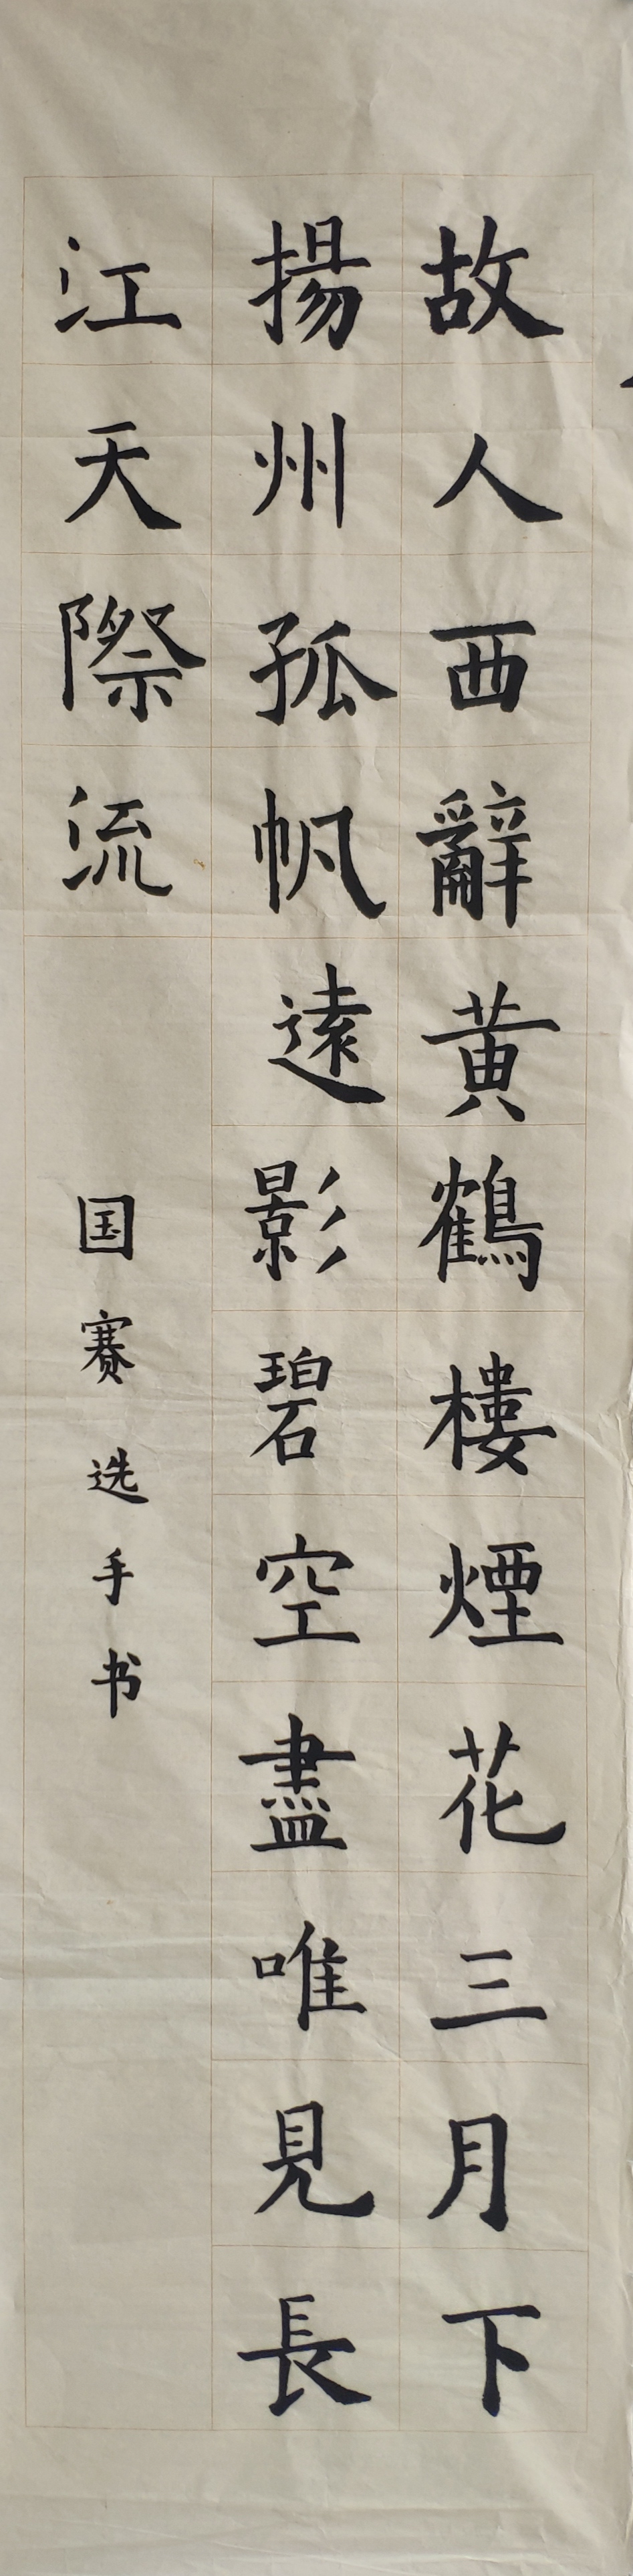 故人西辭黄鶴樓煙花三月下
揚州孤帆遠影碧空盡唯見長
江天際流
国赛选手书